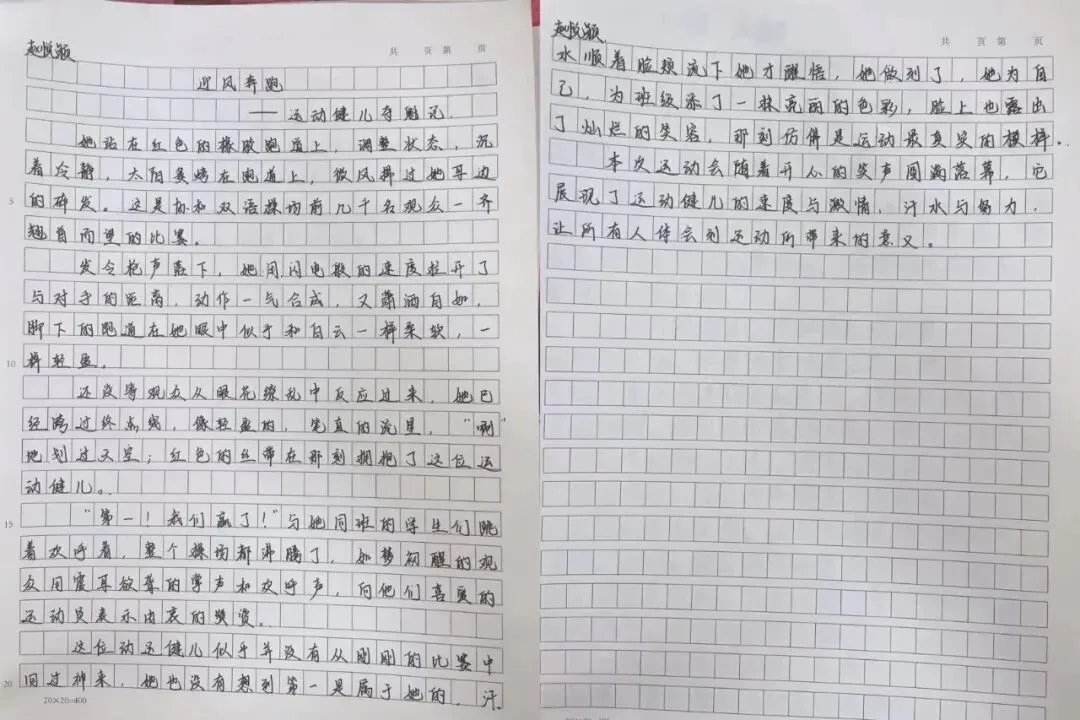 赵悦颖
共 页 第 页
迎风奔跑
——运动健儿夺魁记
她站在红色的橡胶跑道上，调整状态，沉
着冷静，太阳炙烤在跑道上，微风拂过她耳边
5
的碎发。这是协和双语操场前几千名观众一齐
翘首而望的比赛。
发令枪声落下，她用闪电般的速度拉开了
与对手的距离，动作一气合成，又潇洒自如，
脚下的跑道在她眼中似乎和白云一样柔软，一
10
样轻盈。
还没等观众从眼花缭乱中反应过来，她已
经跨过终点线，像轻盈的，笔直的流星，“唰”
地划过天空；红色的丝带在那刻拥抱了这位运
动健儿。
15
“第一！我们赢了！”与她同班的学生们跳
着欢呼着，整个操场都沸腾了，如梦初醒的观
众用震耳欲聋的掌声和欢呼声，向他们喜爱的
运动员表示由衷的赞赏。
这位动运健儿似乎并没有从刚刚的比赛中
20
回过神来，她也没有想到第一是属于她的，汗
20×20=400
赵悦颖
共 页 第 页
水顺着脸颊流下她才醒悟，她做到了，她为自
己，为班级添了一抹亮丽的色彩，脸上也露出
了灿烂的笑容，那刻仿佛是运动最真实的模样。
本次运动会随着开心的笑声圆满落幕，它
展现了运动健儿的速度与激情，汗水与努力，
让所有人体会到运动所带来的意义。